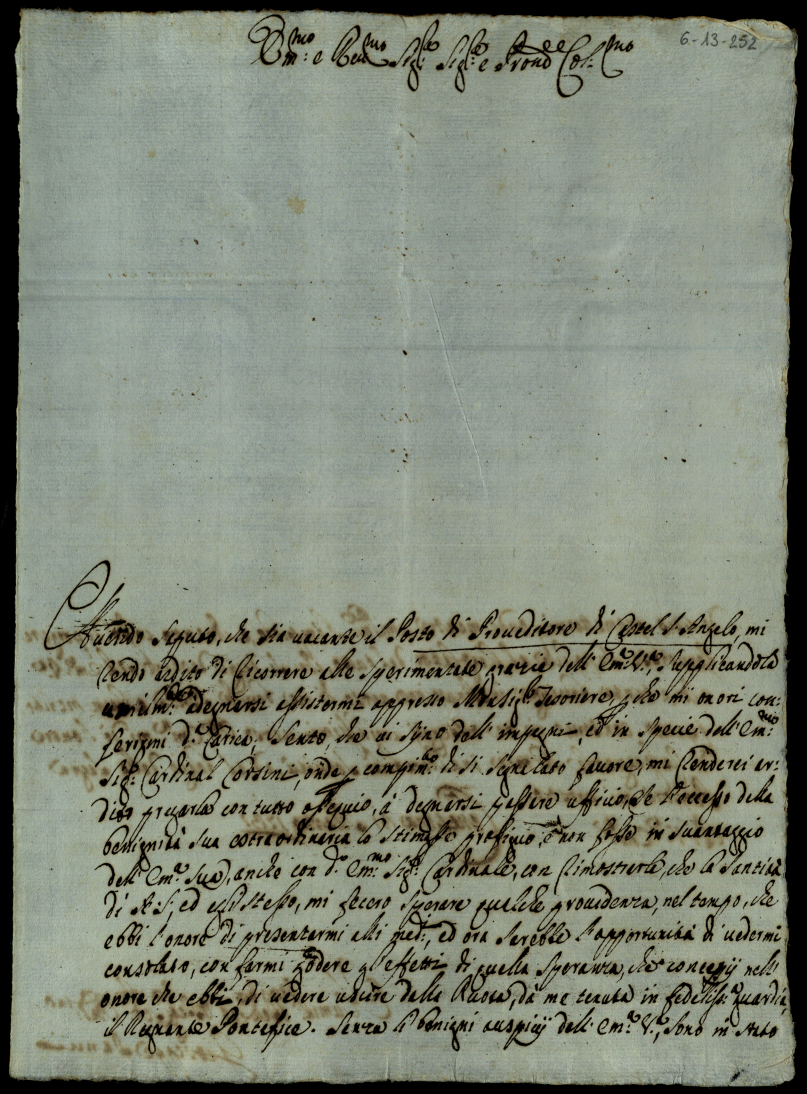 6-13-252
Em:mo e Rev:mo Sig:r Sig:r e Pron:e Col:mo
Avendo saputo, che sia vacante il Posto di Proveditore di Castel S. Angelo, mi
rendo ardito di ricorrere alle sperimentate grazie dell' Em:a V:a, supplicandola
umilm:te a degnarsi assistermi appresso Monsig:r Tesoriere, perche mi onori con-
ferirmi d:a Carica; sento, che vi siino dell' impegni, ed in specie dell' Em:mo
Sig:r Cardinal Corsini, onde p compim:to di si segnalato favore, mi renderei ar-
dito pregarla con tutto ossequio, à degnarsi passare ufficio, (se l'eccesso della
benignità sua extraordinaria lo stimasse proficuo, e non fosse in svantaggio
dell' Em:a Sua), anche con d:o Em:mo Sig:r Cardinale, con rimostrarle, che la Santità
di N: S:, ed esso stesso, mi fecero sperare qualche providenza, nel tempo, che
ebbi l'onore di presentarmi alli piedi, ed ora sarebbe l'opportunità di vedermi
consolato, con farmi godere gl'effetti di quella speranza, che concepij nell'
onore che ebbi, di vedere uscire dalla Ruota, da me tenuta in fedeliss:a guardia,
il Regnante Pontefice. Senza li benigni auspicij dell' Em:a V:a, sono in stato